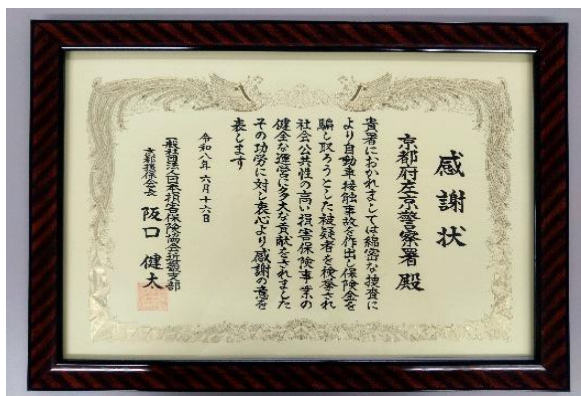 感謝状
京都府左京警察署 殿
貴署におかれましては綿密な捜査に
より自動車接触事故を作出し保険金を
騙し取ろうとした被疑者を検挙され
社会公共性の高い損害保険事業の
健全な運営に多大な貢献をされました
その功労に対し衷心より感謝の意を
表します
令和八年六月十六日
一般社団法人日本損害保険協会近畿支部
京都損保会長 阪口健太